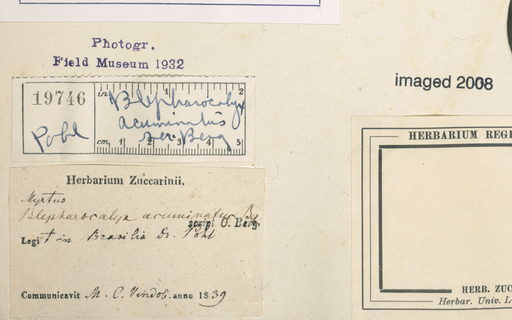 Photogr.
Field Museum 1932
imaged 2008
19746
Pohl
in. 1 2
Blepharocalyx
acuminatus
Ber. Berg
cm. 1 2 3 4 5
HERBARIUM REGI
Herbarium Zuccarinii.
Myrtus
Blepharocalyx acuminatus Bg.
scrips. O. Berg.
Legit in Brasilia Dr. Pohl
Communicavit M. C. Vindob. anno 1839
HERB. ZUC
Herbar. Univ. L